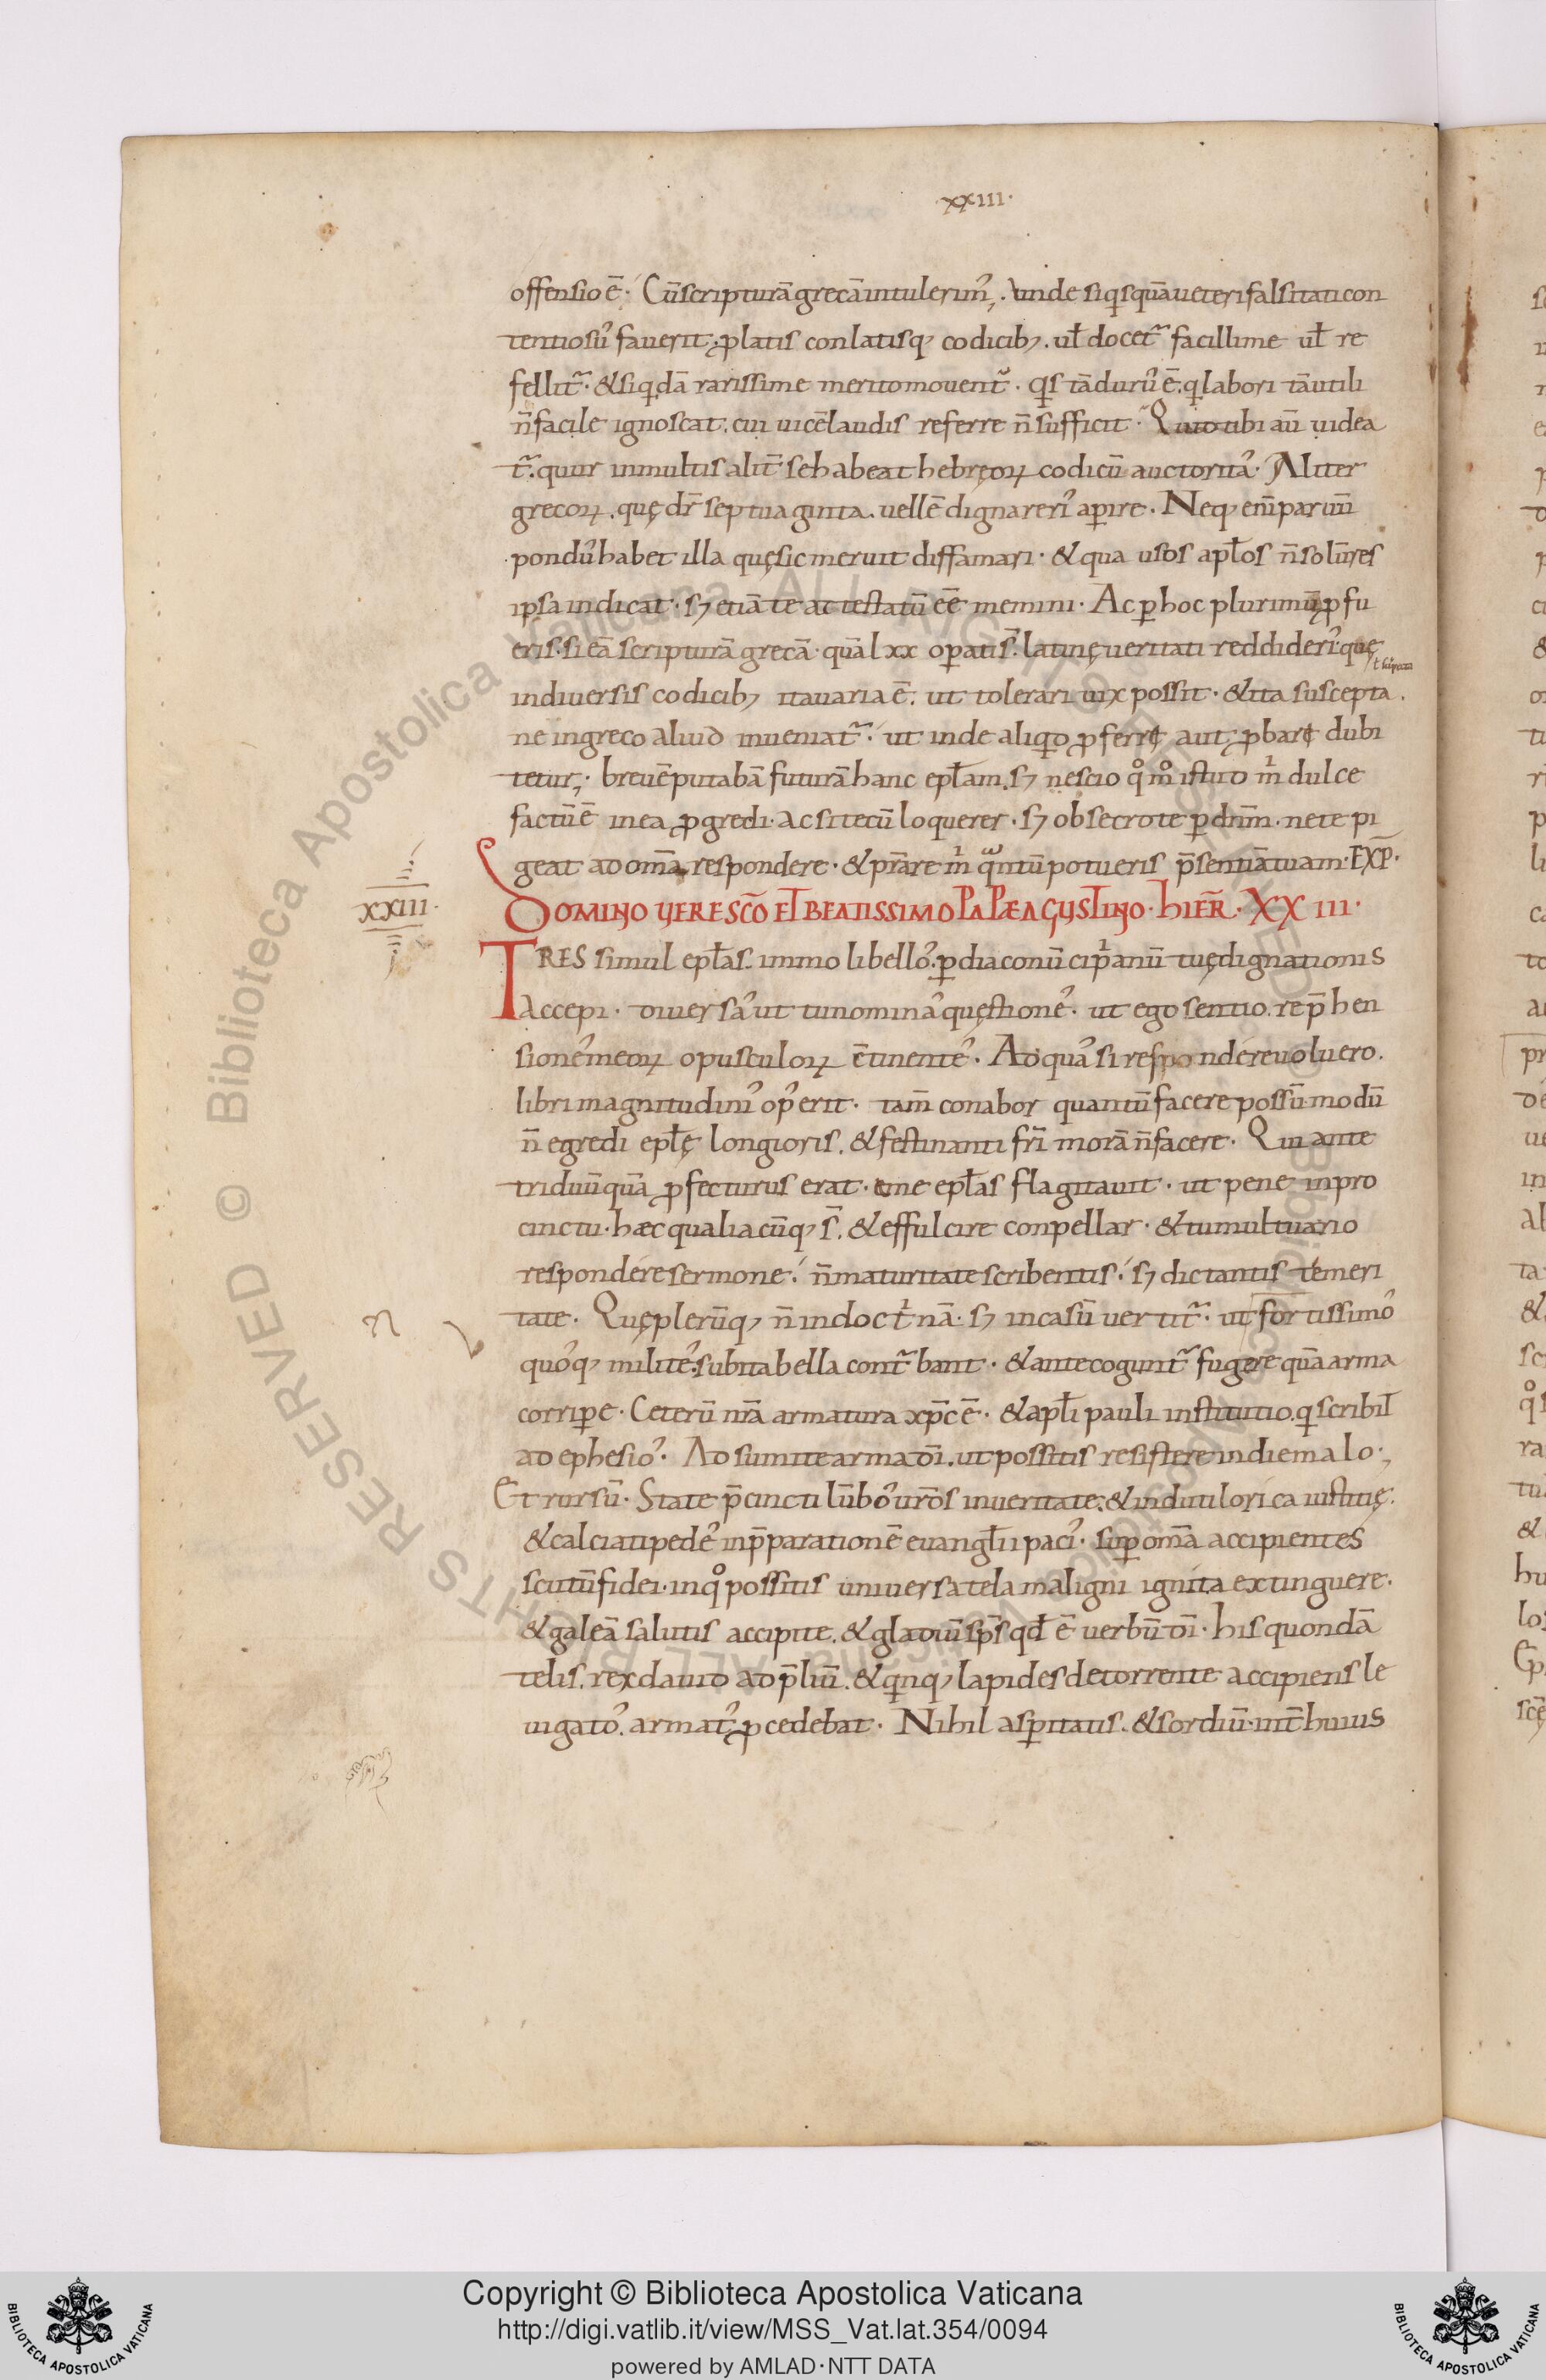 xxiii·
offensio ē· Cū scripturā grecā intulerim᾽. Unde siq̄squā ueteri falsitati con
tentiosu᾽ fauerit· ꝓlatis conlatisq; codicib;. ul̄ docet᷑ facillime ul̄ re
fellit᷑· & siq̄dā rarissime merito mouent᷑· q̄s tā duru᾽ ē. q̄ labori tā utili
n̄ facile ignoscat. cui uicē laudis referre n̄ sufficit· Quid tibi aū uidea
t᷑. quur in multis alit᷑ se habeat hebręoꝝ codicū auctorita᾽· Aliter
grecoꝝ. quę dr̄ septuaginta. uellē dignareri᾽ aꝑire· Neq; eni᷑ paruū
pondu᾽ habet illa quę sic meruit diffamari· & qua usos apl̄os n̄ solū res
ipsa indicat· s; etiā te attestatū eē memini· Ac ꝑ hoc plurimū ꝓfu
eris· si eā scripturā grecā· quā lxx oꝑati s̄. latinę ueritati reddideri᾽· quę
in diuersis codicib; ita uaria ē. ut tolerari uix possit· & ita suscepta.
ne in greco aliud inueniat᷑· ut inde aliq̄d ꝓferre aut ꝓbare dubi
tetur· breuē putabā futurā hanc epl̄am. s; nescio qº mº istud m̄ dulce
factū ē in ea ꝓgredi· ac si tecū loquerer· s; obsecro te ꝑ dnm̄· ne te pi
geat ad om̄a respondere· & pr̄are m̄ quntū potueris p̄sentiā tuam· EXP̄·
XXIII·
DOMINO UERE SC̄O ET BEATISSIMO PAPÆ AGUSTINO· HIER̄· XXIII·
TRES simul epl̄as. immo libello᾽. ꝑ diaconū cip̄anū tuę dignationis
accepi· diuersa᾽ ut tu nomina᾽ quęstione᾽· ut ego sentio. rep̄hen
sione᾽ meoꝝ opusculoꝝ c̄tinente᾽· Ad qua᾽ si respondere uoluero.
libri magnitudini᾽ op᾽ erit· tam̄ conabor quantū facere possū modū
n̄ egredi epl̄ę longioris. & festinanti fr̄i morā n̄ facere· Qui ante
triduū quā ꝓfecturus erat· a me epl̄as flagitauit· ut pene in pro
cinctu· hæc qualiacūq; s̄. & effulcire conpellar· & tumultuario
respondere sermone· n̄ maturitate scribentis· s; dictantis temeri
tate· Quę plerūq; n̄ in doct̄nā· s; in casū uertit᷑· ut fortissimo᾽
quo᾽q; milite᾽. subita bella cont᷑bant· & ante cogunt᷑ fugere quā arma
corriꝑe· Ceterū nr̄a armatura xp̄c ē· & apl̄i pauli institutio. q̄ scribit̄
ad ephesio᾽· Adsumite arma dī. ut possitis resistere in die malo·,
Et rursū· State p̄cincti lūbo᾽ ur̄os in ueritate. & induti lorica iustitię.
& calciati pede᾽ in p̄paratione euangl̄ii paci᾽· suꝑ om̄a accipientes
scutū fidei· in qº possitis uniuersa tela maligni ignita extinguere·
& galeā salutis accipite. & gladiū sp̄s qd̄ ē uerbū dī· his quondā
telis. rex dauid ad p̄liū. & q̄nq; lapides de torrente accipiens le
uigato᾽. armat᾽ ꝓcedebat· Nihil asꝑitatis. & sordiū· int̄ huius
© Biblioteca Apostolica Vaticana ALL RIGHTS RESERVED
Copyright © Biblioteca Apostolica Vaticana
http://digi.vatlib.it/view/MSS_Vat.lat.354/0094
powered by AMLAD·NTT DATA
BIBLIOTECA APOSTOLICA VATICANA
BIBLIOTECA APOSTOLICA VATICANA